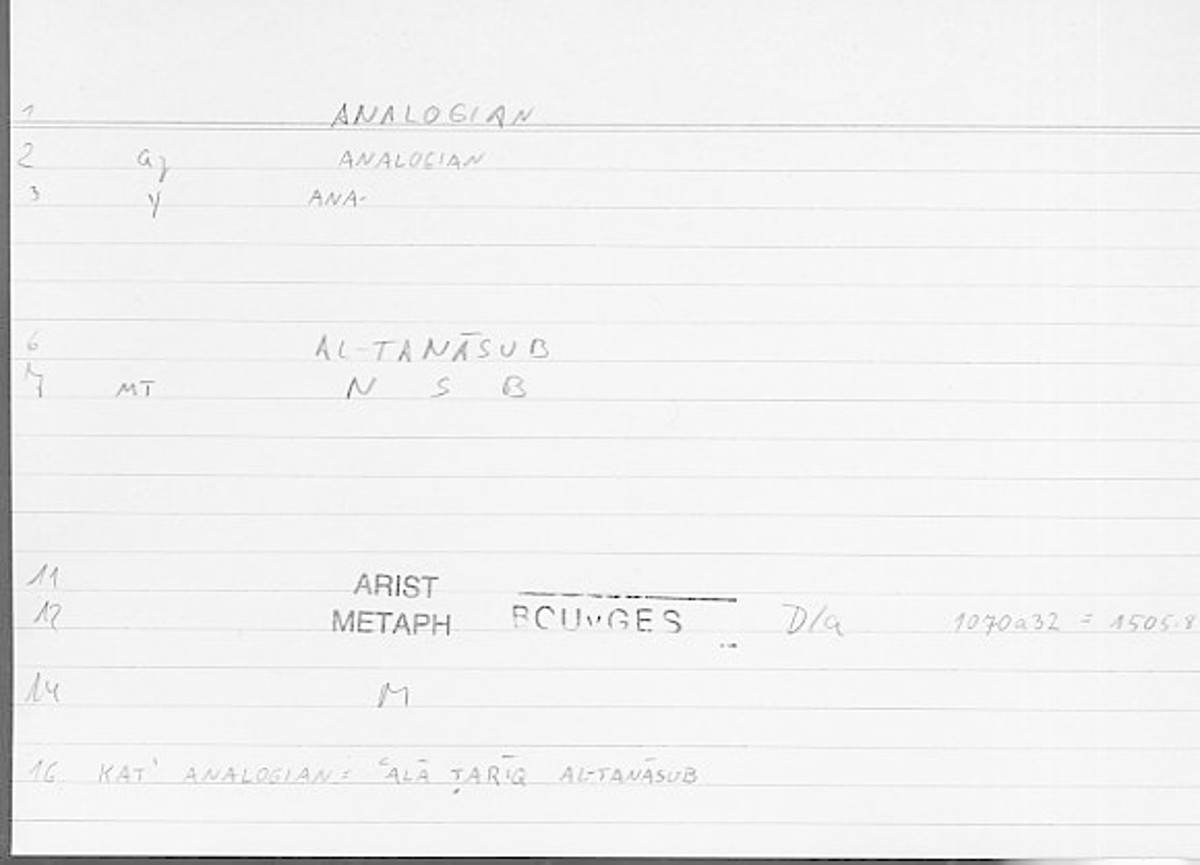 1 ANALOGIAN
2 az ANALOGIAN
3 y ANA-
6 AL-TANĀSUB
7 MT N S B
11 ARIST
12 METAPH BOUYGES D/a 1070a32 = 1505.8
14 M
16 KAT' ANALOGIAN = ʿALĀ ṬARĪQ AL-TANĀSUB